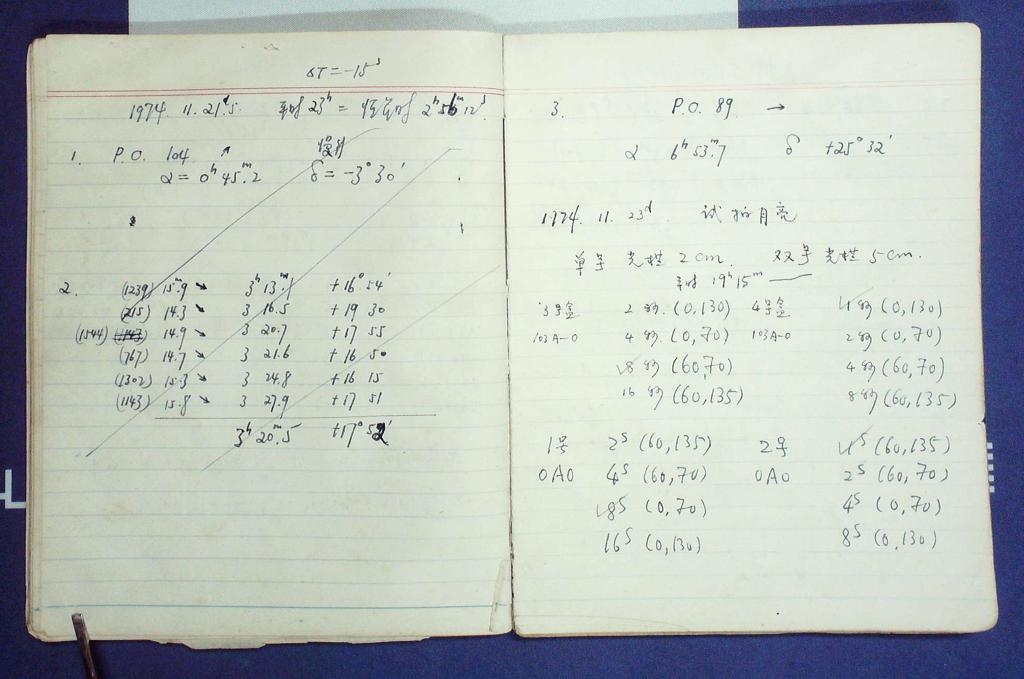 ΔT = -15ˢ
1974. 11. 21ᵈ.5 平时 23ʰ = 恒星时 2ʰ 56ᵐ 12ˢ
1. P.O. 104 ↗
α = 0ʰ 45ᵐ.2 δ = -3° 30′
2. (1239) 15ᵐ.9 ↘ 3ʰ 13ᵐ.1 +16° 54′
(215) 14.3 ↘ 3 16.5 +19 30
(1544) 14.9 ↘ 3 20.7 +17 55
(767) 14.7 ↘ 3 21.6 +16 50
(1302) 15.3 ↘ 3 24.8 +16 15
(1143) 15.8 ↘ 3 27.9 +17 51
3ʰ 20ᵐ.5 +17° 52′
3. P.O. 89 →
α 6ʰ 53ᵐ.7 δ +25° 32′
1974. 11. 23ᵈ. 试拍月亮
单号光栏 2cm. 双号光栏 5cm.
平时 19ʰ 15ᵐ
3号盒 2秒 (0,130) 4号盒 1秒 (0,130)
103A-O 4秒 (0,70) 103A-O 2秒 (0,70)
8秒 (60,70) 4秒 (60,70)
16秒 (60,135) 8秒 (60,135)
1号 2ˢ (60,135) 2号 1ˢ (60,135)
OAO 4ˢ (60,70) OAO 2ˢ (60,70)
8ˢ (0,70) 4ˢ (0,70)
16ˢ (0,130) 8ˢ (0,130)